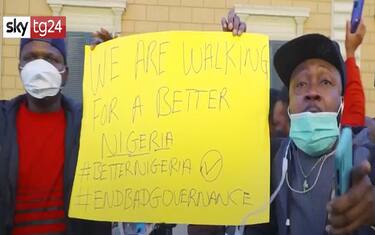 sky tg24
WE ARE WALKING
FOR A BETTER
NIGERIA
#BETTERNIGERIA
#ENDBADGOVERNANCE